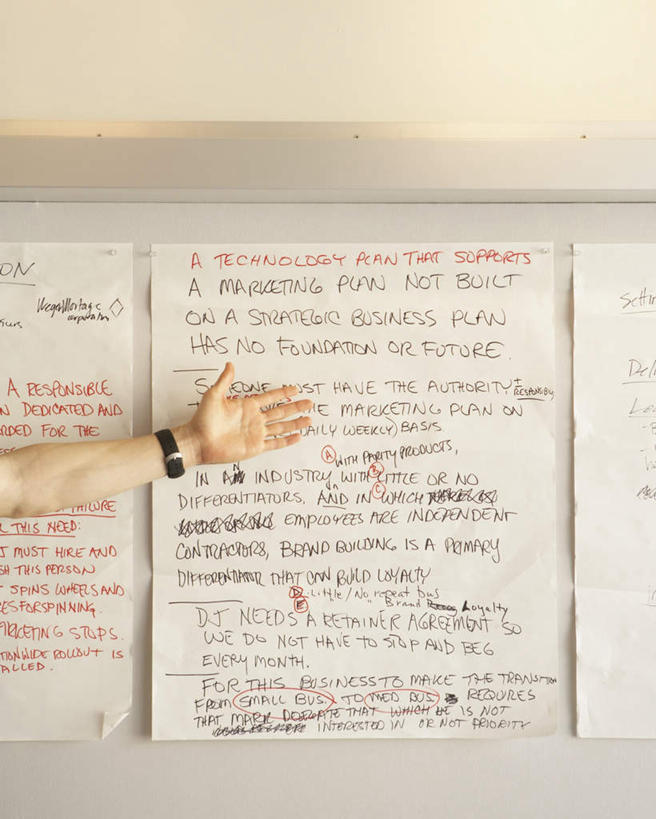 ON
A RESPONSIBLE
N DEDICATED AND
FOR THE
FAILURE
THIS NEED:
J MUST HIRE AND
SH THIS PERSON
SPINS WHEELS AND
ES FOR SPINNING.
MARKETING STOPS.
TIONWIDE ROLLOUT IS
ALLED.
A TECHNOLOGY PLAN THAT SUPPORTS
A MARKETING PLAN NOT BUILT
ON A STRATEGIC BUSINESS PLAN
HAS NO FOUNDATION OR FUTURE.
SOMEONE MUST HAVE THE AUTHORITY &
RESPONSIBILITY
THE MARKETING PLAN ON
DAILY WEEKLY) BASIS.
A WITH PARITY PRODUCTS,
IN AN INDUSTRY WITH B LITTLE OR NO
DIFFERENTIATORS, AND IN C WHICH
EMPLOYEES ARE INDEPENDENT
CONTRACTORS, BRAND BUILDING IS A PRIMARY
DIFFERENTIATOR THAT CAN BUILD LOYALTY
D - Little/No repeat bus
E " Brand Loyalty
DJ NEEDS A RETAINER AGREEMENT SO
WE DO NOT HAVE TO STOP AND BEG
EVERY MONTH.
FOR THIS BUSINESS TO MAKE THE TRANSITION
FROM SMALL BUS. TO MED BUS. REQUIRES
THAT MARK DELEGATE THAT WHICH HE IS NOT
INTERESTED IN OR NOT PRIORITY